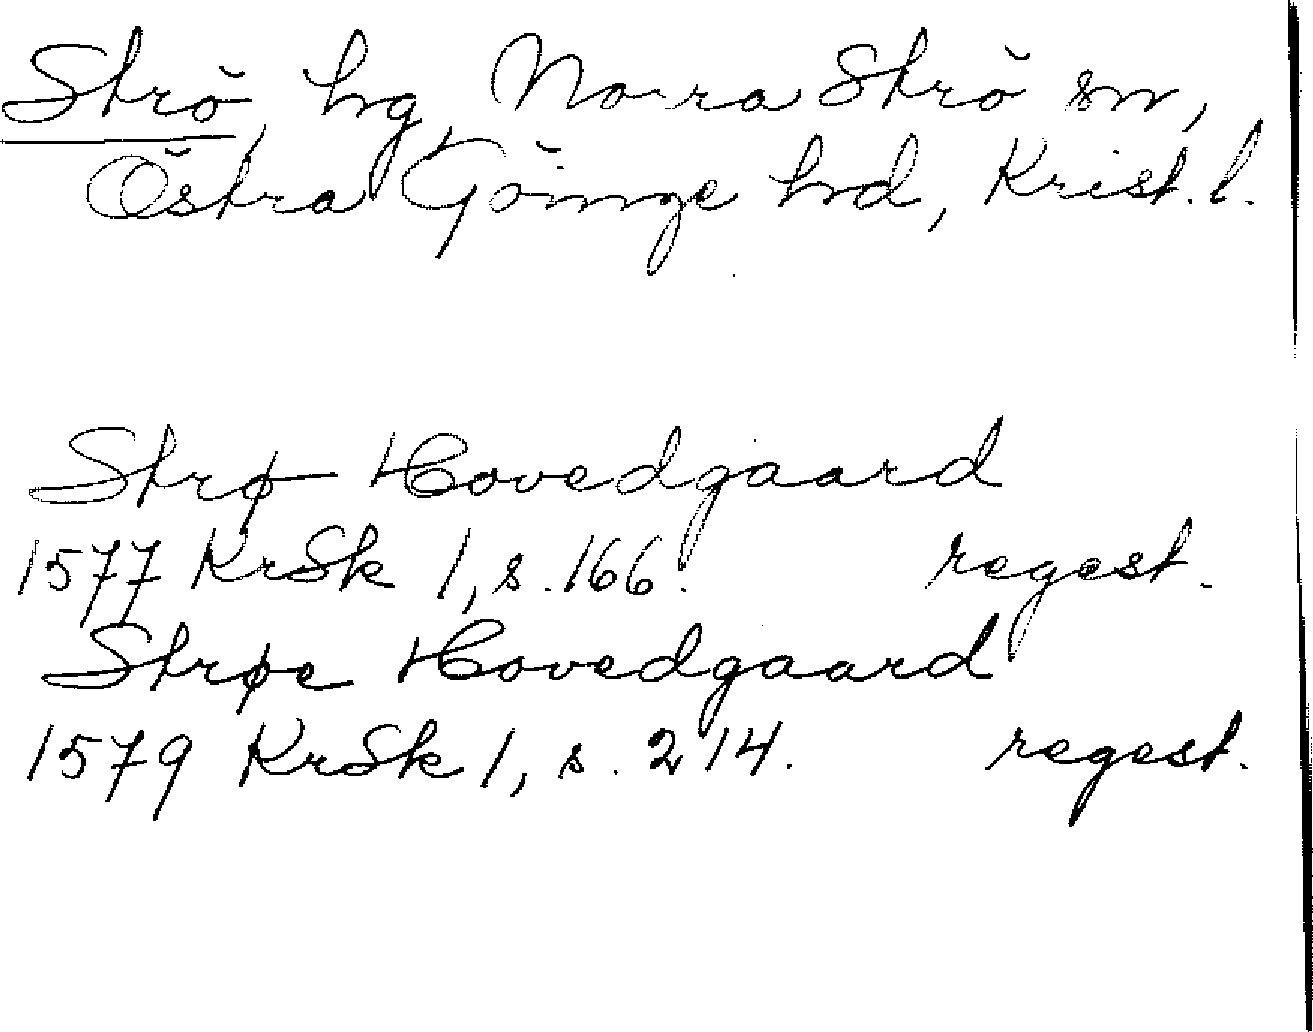 Strö, hg, Norra Strö sn,
Östra Göinge hd, Krist. l.
Strø Hovedgaard
1577 KrSk 1, s. 166. regest.
Strøe Hovedgaard
1579 KrSk 1, s. 214. regest.